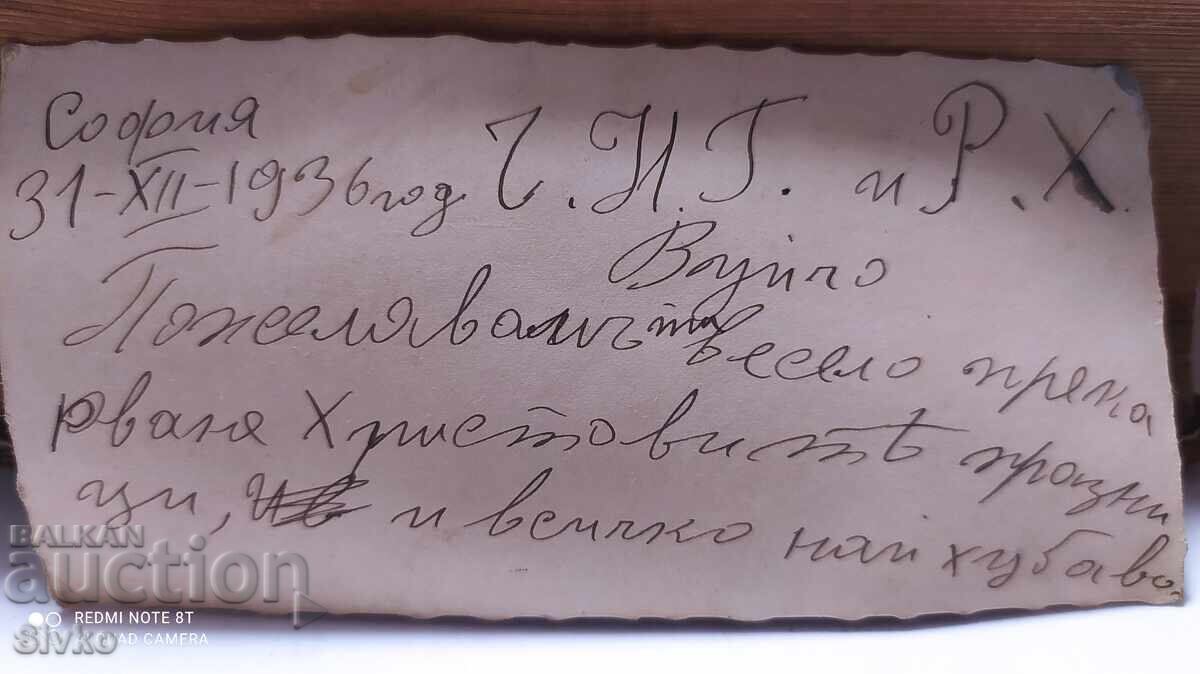 София
31-XII-1936 год. Ч.Н.Г. и Р.Х.
Вуйчо
Пожелавамъ ти весело прека
рване Христовитѣ праздни
ци, и всичко най хубаво.
BALKAN
auction
REDMI NOTE 8T
AI QUAD CAMERA
sivko